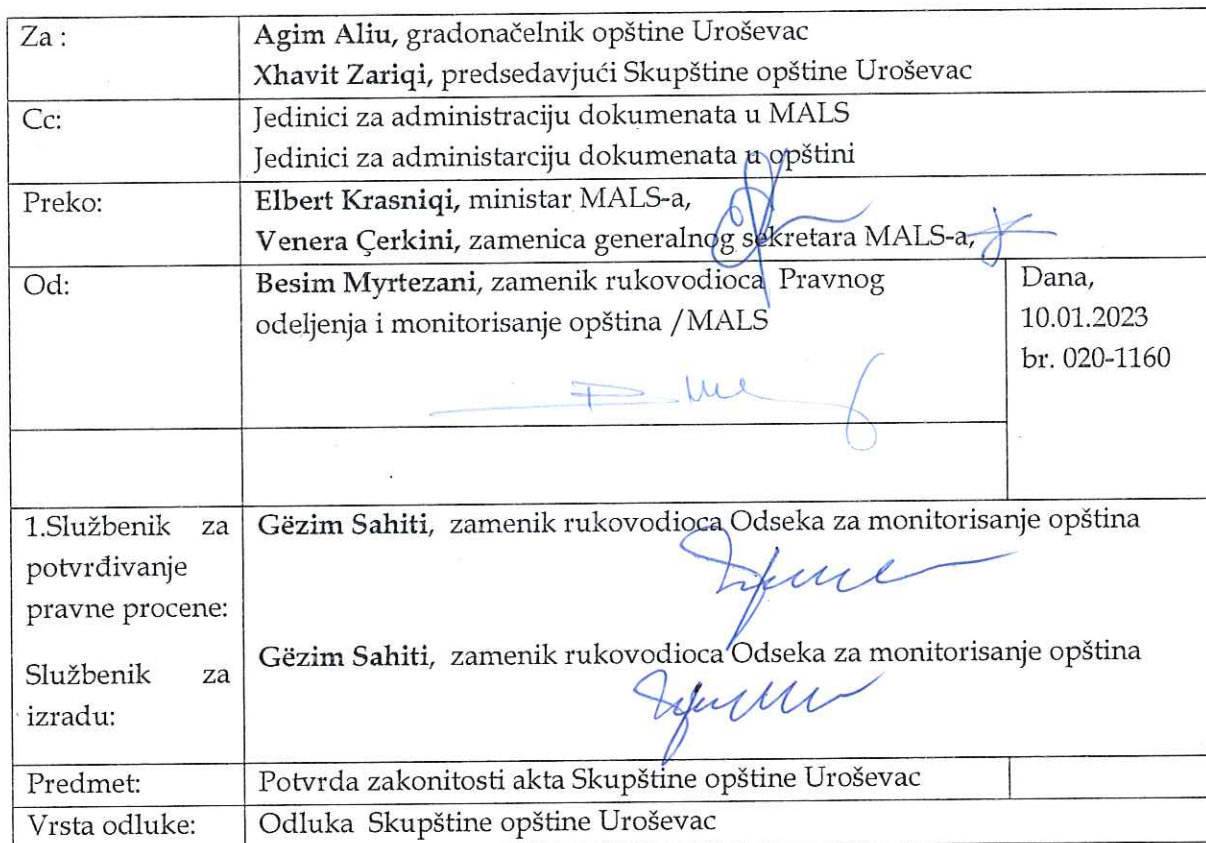 Za :
Agim Aliu, gradonačelnik opštine Uroševac
Xhavit Zariqi, predsedavjući Skupštine opštine Uroševac
Cc:
Jedinici za administraciju dokumenata u MALS
Jedinici za administarciju dokumenata u opštini
Preko:
Elbert Krasniqi, ministar MALS-a,
Venera Çerkini, zamenica generalnog sekretara MALS-a,
Od:
Besim Myrtezani, zamenik rukovodioca Pravnog
odeljenja i monitorisanje opština /MALS
Dana,
10.01.2023
br. 020-1160
1.Službenik za
potvrđivanje
pravne procene:
Gëzim Sahiti, zamenik rukovodioca Odseka za monitorisanje opština
Službenik za
izradu:
Gëzim Sahiti, zamenik rukovodioca Odseka za monitorisanje opština
Predmet:
Potvrda zakonitosti akta Skupštine opštine Uroševac
Vrsta odluke:
Odluka Skupštine opštine Uroševac